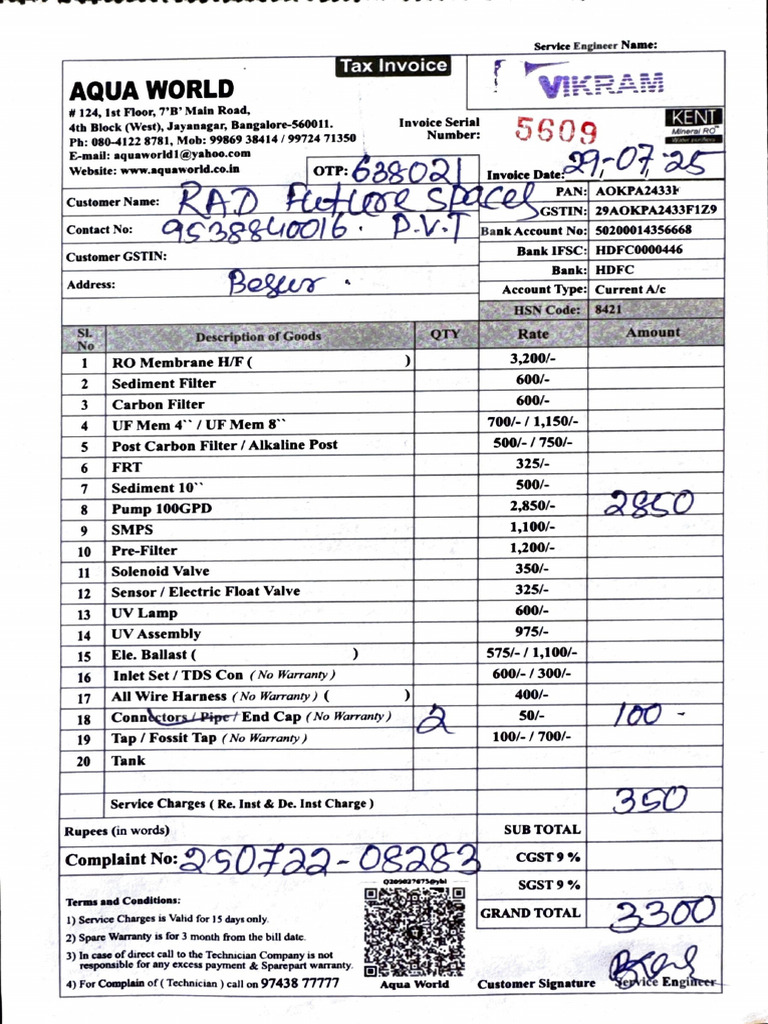 Service Engineer Name:
Tax Invoice
VIKRAM
AQUA WORLD
# 124, 1st Floor, 7'B' Main Road,
4th Block (West), Jayanagar, Bangalore-560011.
Ph: 080-4122 8781, Mob: 99869 38414 / 99724 71350
E-mail: aquaworld1@yahoo.com
Website: www.aquaworld.co.in
Invoice Serial
Number: 5609
KENT
Mineral RO™
Water purifiers
OTP: 638021
Invoice Date: 29-07-25
Customer Name: RAD Future Spaces
Contact No: 9538840016. P.V.T
Customer GSTIN:
Address: Begur.
PAN: AOKPA2433F
GSTIN: 29AOKPA2433F1Z9
Bank Account No: 50200014356668
Bank IFSC: HDFC0000446
Bank: HDFC
Account Type: Current A/c
HSN Code: 8421
Sl. No Description of Goods QTY Rate Amount
1 RO Membrane H/F ( ) 3,200/-
2 Sediment Filter 600/-
3 Carbon Filter 600/-
4 UF Mem 4`` / UF Mem 8`` 700/- / 1,150/-
5 Post Carbon Filter / Alkaline Post 500/- / 750/-
6 FRT 325/-
7 Sediment 10`` 500/-
8 Pump 100GPD 2,850/- 2850
9 SMPS 1,100/-
10 Pre-Filter 1,200/-
11 Solenoid Valve 350/-
12 Sensor / Electric Float Valve 325/-
13 UV Lamp 600/-
14 UV Assembly 975/-
15 Ele. Ballast ( ) 575/- / 1,100/-
16 Inlet Set / TDS Con (No Warranty) 600/- / 300/-
17 All Wire Harness (No Warranty) ( ) 400/-
18 Connectors / Pipe / End Cap (No Warranty) 2 50/- 100 -
19 Tap / Fossit Tap (No Warranty) 100/- / 700/-
20 Tank
Service Charges ( Re. Inst & De. Inst Charge ) 350
Rupees (in words)
SUB TOTAL
Complaint No: 250722-08283
CGST 9 %
SGST 9 %
GRAND TOTAL 3300
Terms and Conditions:
1) Service Charges is Valid for 15 days only.
2) Spare Warranty is for 3 month from the bill date.
3) In case of direct call to the Technician Company is not
responsible for any excess payment & Sparepart warranty.
4) For Complain of ( Technician ) call on 97438 77777
Aqua World
Customer Signature
Service Engineer